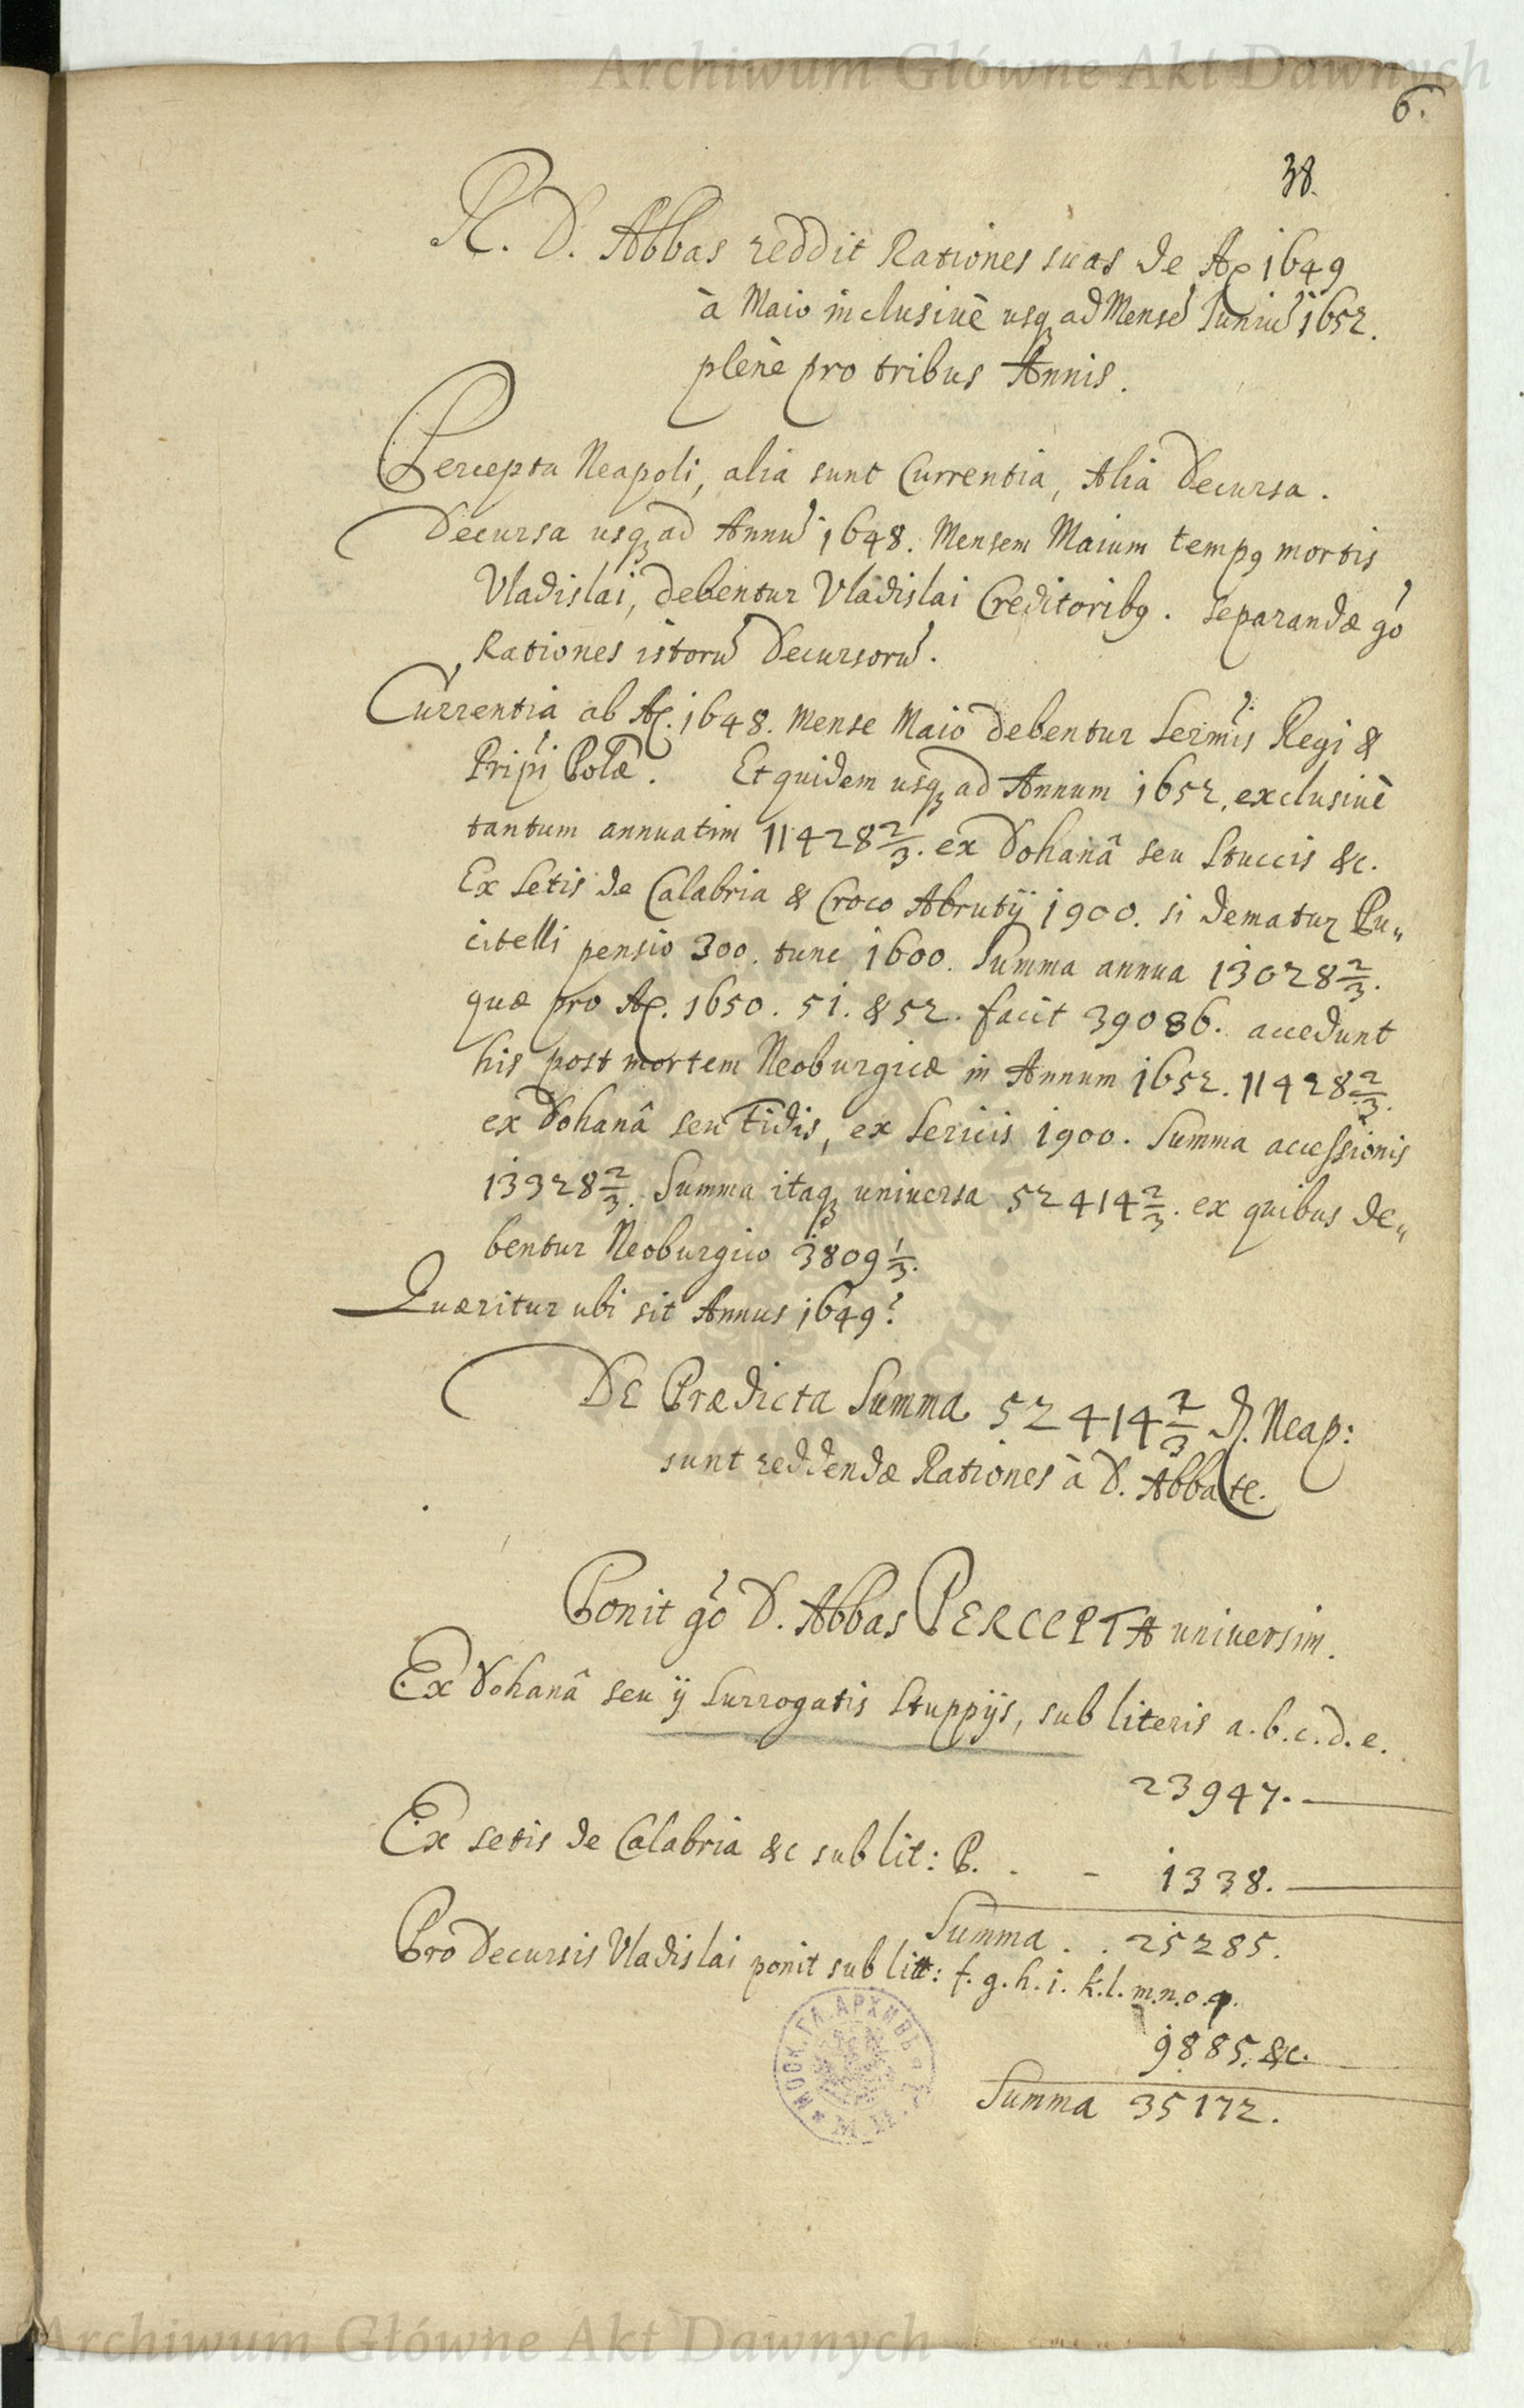 Archiwum Główne Akt Dawnych
6.
38.
R. D. Abbas reddit Rationes suas de Ao 1649
à Maio inclusivè usq ad Mense Iuniu 1652.
plenè pro tribus Annis.
Percepta Neapoli, alia sunt Currentia, Alia Decursa.
Decursa usq ad Annu 1648. Mensem Maium temp9 mortis
Vladislai, debentur Vladislai Creditorib9. Separandæ go
Rationes istoru Decursoru.
Currentia ab Ao. 1648. Mense Maio debentur Sermis Regi &
Pripi Polæ. Et quidem usq ad Annum 1652, exclusivè
tantum annuatim 11428 2/3. ex Dohanâ seu Stuccis &c.
Ex Setis de Calabria & Croco Abrutij 1900. si dematur Pu„
citelli pensio 300. tunc 1600. Summa annua 13028 2/3.
quæ pro Ao. 1650. 51. & 52. facit 39086. accedunt
his post mortem Neoburgicæ in Annum 1652. 11428 2/3.
ex Dohanâ seu Fidis, ex Sericis 1900. Summa accessionis
13328 2/3. Summa itaq universa 52414 2/3. ex quibus de„
bentur Neoburgico 3809 1/3.
Quæritur ubi sit Annus 1649?
DE Prædicta Summa 52414 2/3 d. Neap:
sunt reddendæ Rationes à D. Abbate.
Ponit go D. Abbas PERCEPTA universim.
Ex Dohanâ seu ij Surrogatis Stuppijs, sub literis a. b. c. d. e.
23947.
Ex setis de Calabria &c sub lit: P. . - 1338.
Summa . . 25285.
Pro Decursis Vladislai ponit sub litt: f. g. h. i. k. l. m. n. o. q.
9885. &c.
Summa 35172.
МОСК. ГЛ. АРХИВЪ
Archiwum Główne Akt Dawnych